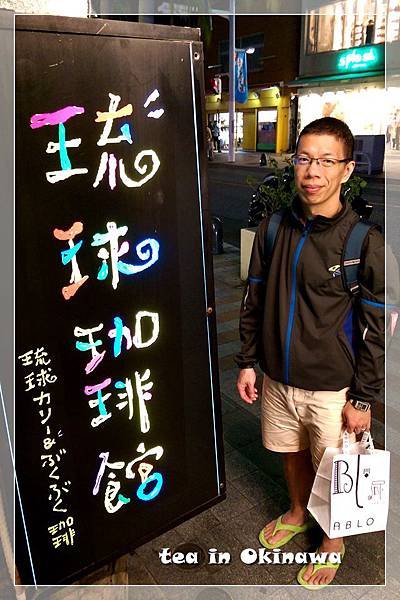 琉球珈琲館
琉球カリー&ぶくぶく珈琲
splash
BLOC
ABLO
tea in Okinawa